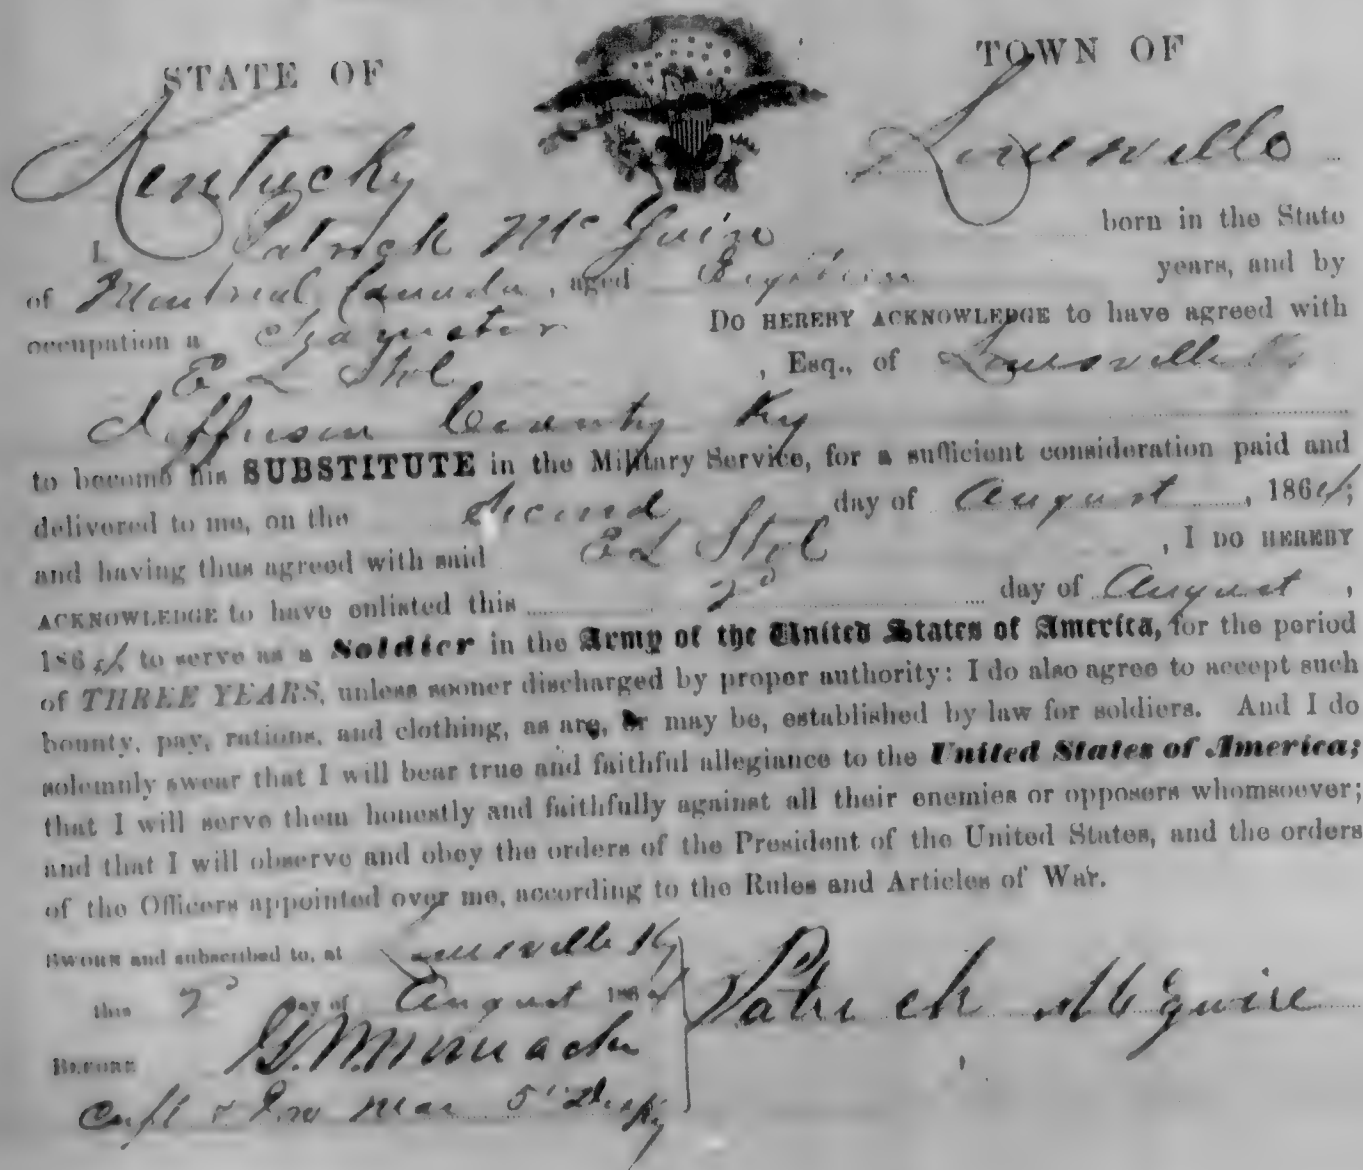 STATE OF
TOWN OF
Kentucky
Louisville
I, Patrick McGuire born in the State
of Montreal Canada, aged Eighteen years, and by
occupation a DO HEREBY ACKNOWLEDGE to have agreed with
E L , Esq., of Louisville Ky
Jefferson County Ky
to become his SUBSTITUTE in the Military Service, for a sufficient consideration paid and
delivered to me, on the Second day of August, 1864;
and having thus agreed with said E L , I DO HEREBY
ACKNOWLEDGE to have enlisted this 2d day of August,
1864 to serve as a Soldier in the Army of the United States of America, for the period
of THREE YEARS, unless sooner discharged by proper authority: I do also agree to accept such
bounty, pay, rations, and clothing, as are, or may be, established by law for soldiers. And I do
solemnly swear that I will bear true and faithful allegiance to the United States of America;
that I will serve them honestly and faithfully against all their enemies or opposers whomsoever;
and that I will observe and obey the orders of the President of the United States, and the orders
of the Officers appointed over me, according to the Rules and Articles of War.
SWORN and subscribed to, at Louisville Ky
this 2d day of August 1864
Patrick McGuire
BEFORE
Capt & Pro Mar 5" Dist Ky